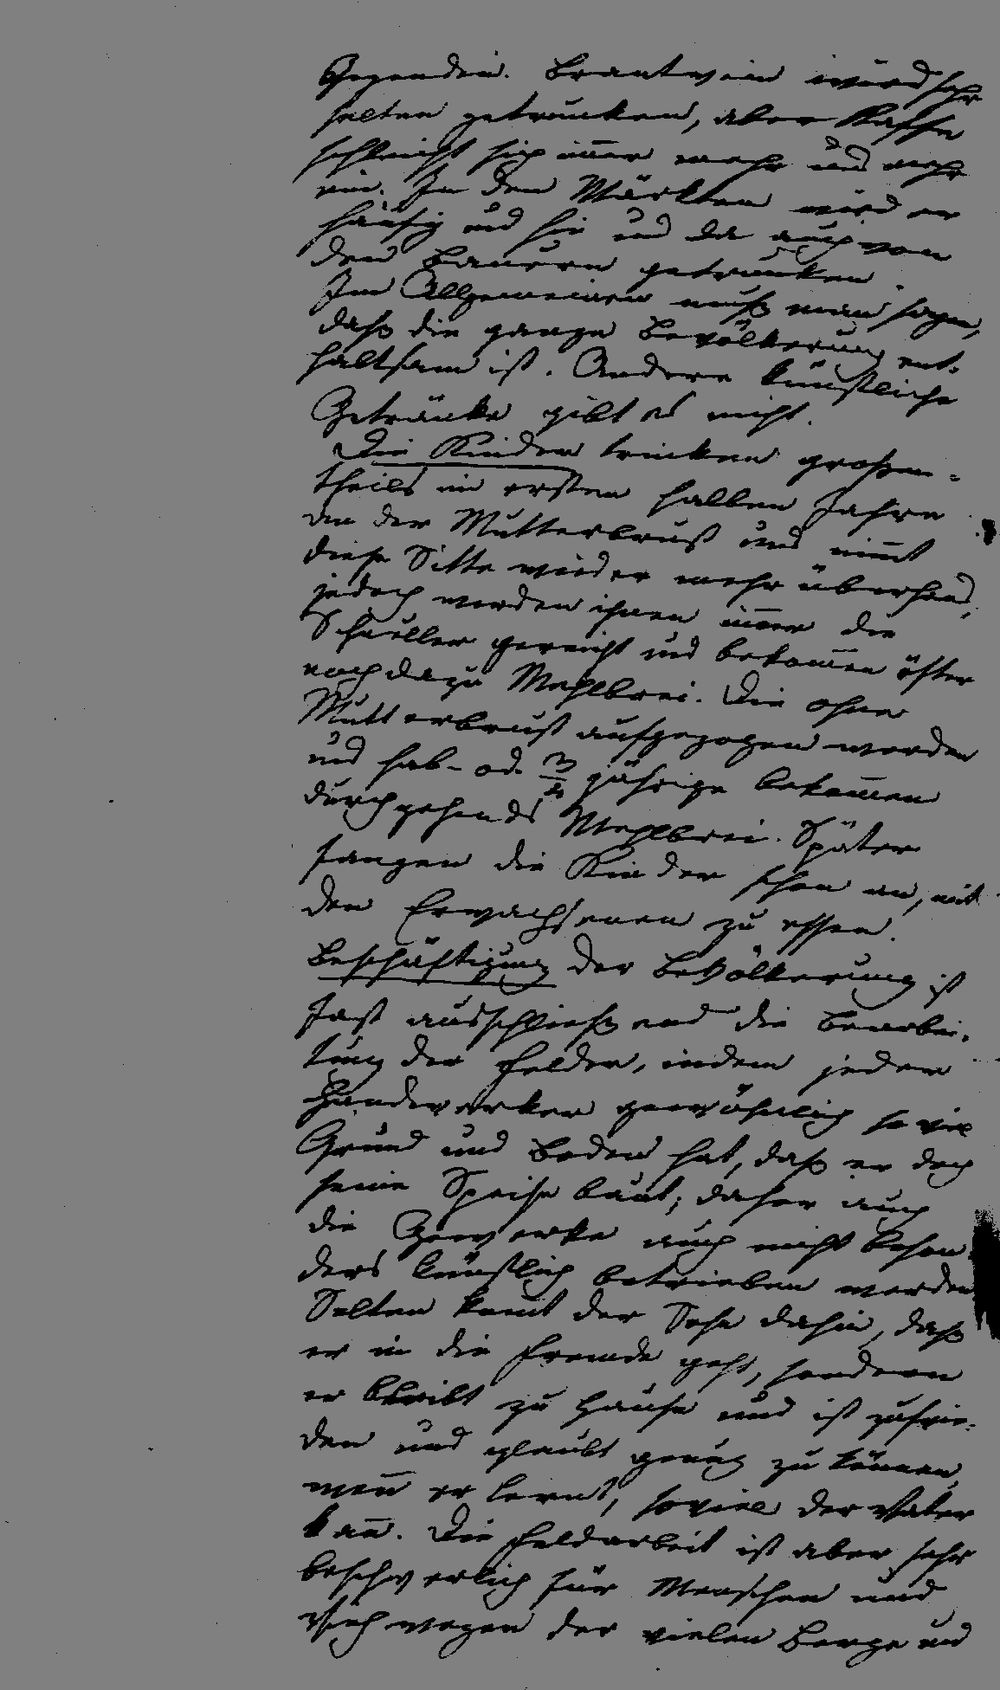 Gegenden. Brantwein wird sehr
selten getrunken, aber Kaffee
schleicht sich im̅er mehr und mehr
ein. In den Märkten wird er
häufig und hie und da auch von
den Bauern getrunken.
Im Allgemeinen muß man sagen,
daß die ganze Bevölkerung ent-
haltsam ist. Andere künstliche
Getränke gibt es nicht.
Die Kinder trinken großen-
theils im ersten halben Jahre
an der Mutterbrust und nim̅t
diese Sitte wieder mehr überhand,
jedoch werden ihnen im̅er die
Schnuller gereicht und bekom̅en öfter
noch dazu Mehlbrei. Die ohne
Mutterbrust aufgezogen werden
und halb- od. 3/4 jährige bekom̅en
durchgehends Mehlbrei. Später
fangen die Kinder schon an, mit
den Erwachsenen zu essen.
Beschäftigung der Bevölkerung ist
fast ausschließend die Bearbei-
tung der Felder, indem jeder
Handwerker gewöhnlich so viel
Grund und Boden hat, daß er doch
seine Speise baut; daher auch
die Gewerke auch nicht beson-
ders künstlich betrieben werden.
Selten kom̅t der Sohn dahin, daß
er in die Fremde geht, sondern
er bleibt zu Hause und ist zufrie-
den und glaubt genug zu können,
wen̅ er lernt, soviel der Vater
kan̅. Die Feldarbeit ist aber sehr
beschwerlich für Menschen und
Vieh wegen der vielen Berge und